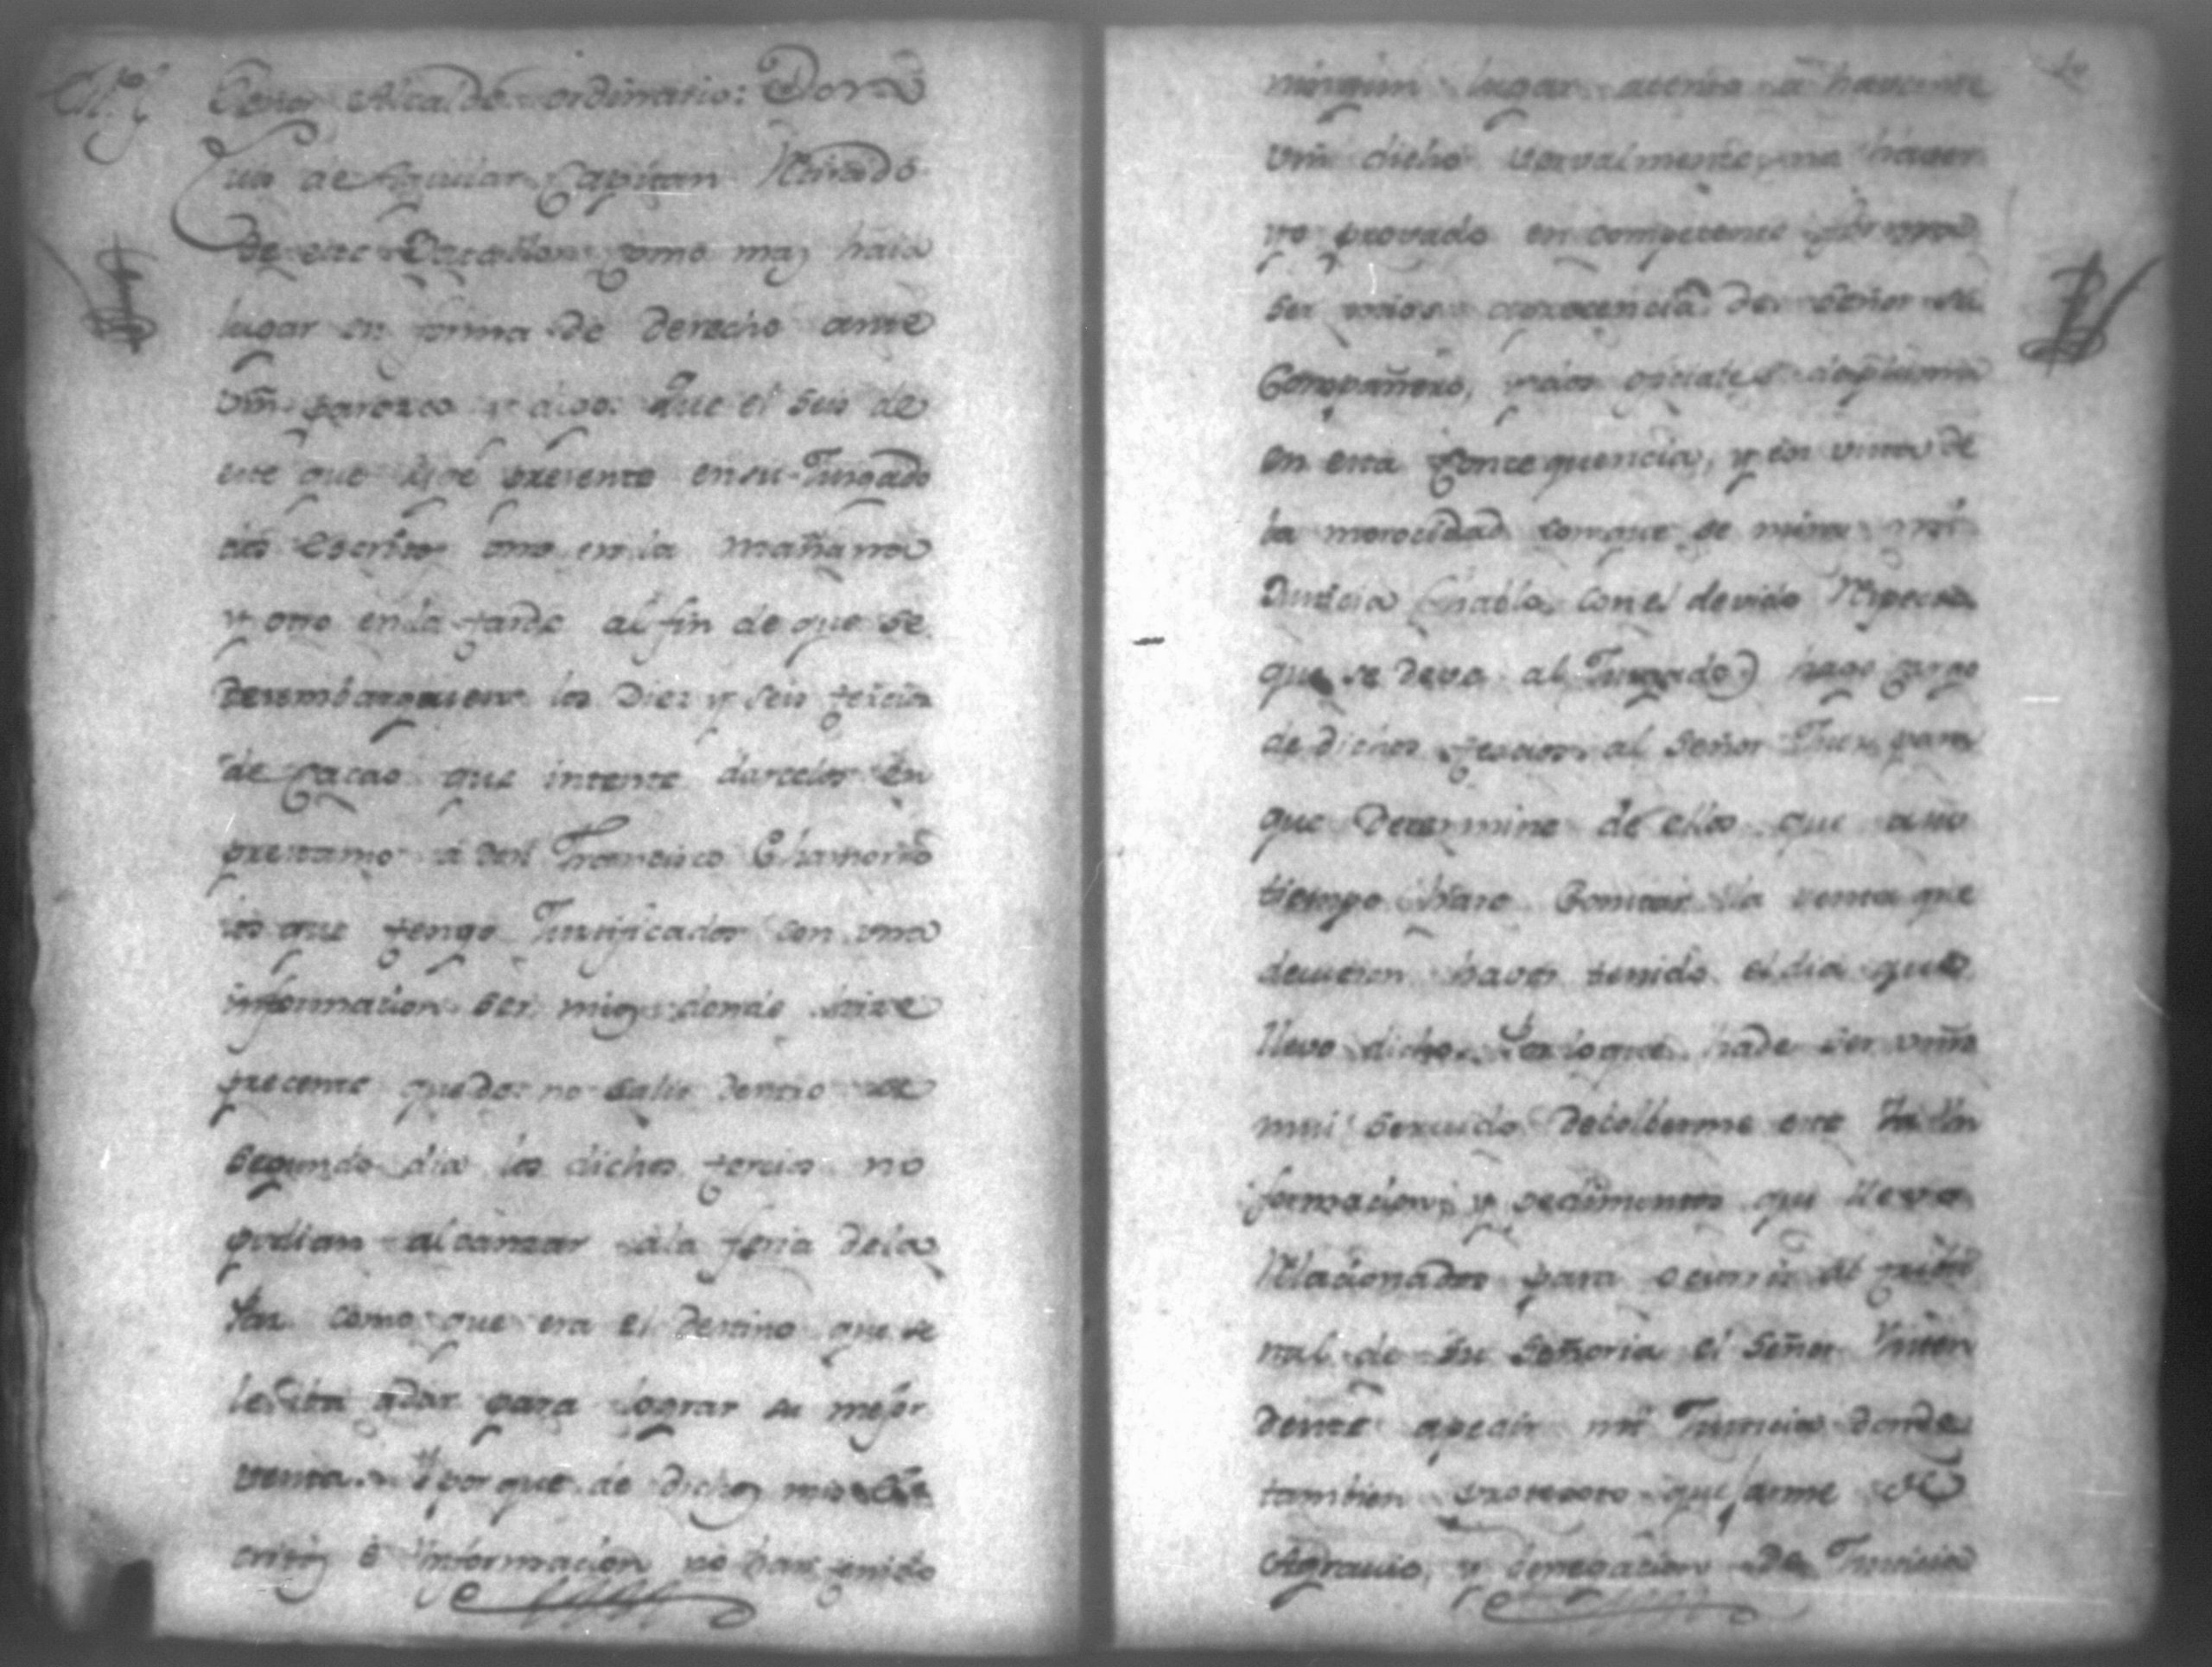 Señor Alcalde ordinario: Don
Luis de Aguilar Capitan Retirado
de este Batallon como mas haia
lugar en forma de derecho ante
Vm parezco y digo: Que el seis de
este que rije presente en su Jusgado
dos escritos uno en la mañana
y otro en la tarde al fin de que se
desembargasen los diez y seis tercios
de cacao que intente darcelos en
prestamo a don Francisco Chamorro
los que tengo Justificados con una
informacion ser mios donde hize
precente que de no salir dentro de
segundo dia los dichos tercios no
podian alcanzar a la feria de la
como que era el destino que se
les iba a dar para lograr su mejor
venta. Y porque de dichos mis es
critos é informacion no han tenido
ningun lugar atento a haverme
Vm dicho vervalmente, no haver
yo provado en competente forma
ser mios
Compañero, y dos oficiales de pluma
en esta consequencia, y en vista de
la morocidad con que se mira mi
Justicia (hablo con el devido respecto
que se deva al Jusgado) hago cargo
de dichos tercios al Señor Jues para
que determine de ellos que a su
tiempo hare constar la venta que
devieron haver tenido el dia que
llevo dicho. Por lo que ha de ser Vm
mui servido debolberme este la in
formacion, y pedimentos que llevo
relacionados para ocurrir al tribu
nal de su Señoria el Señor Inten
dente a pedir mi Justicia donde
tambien protesto quejarme de
Agravio, y denegacion de Justicia